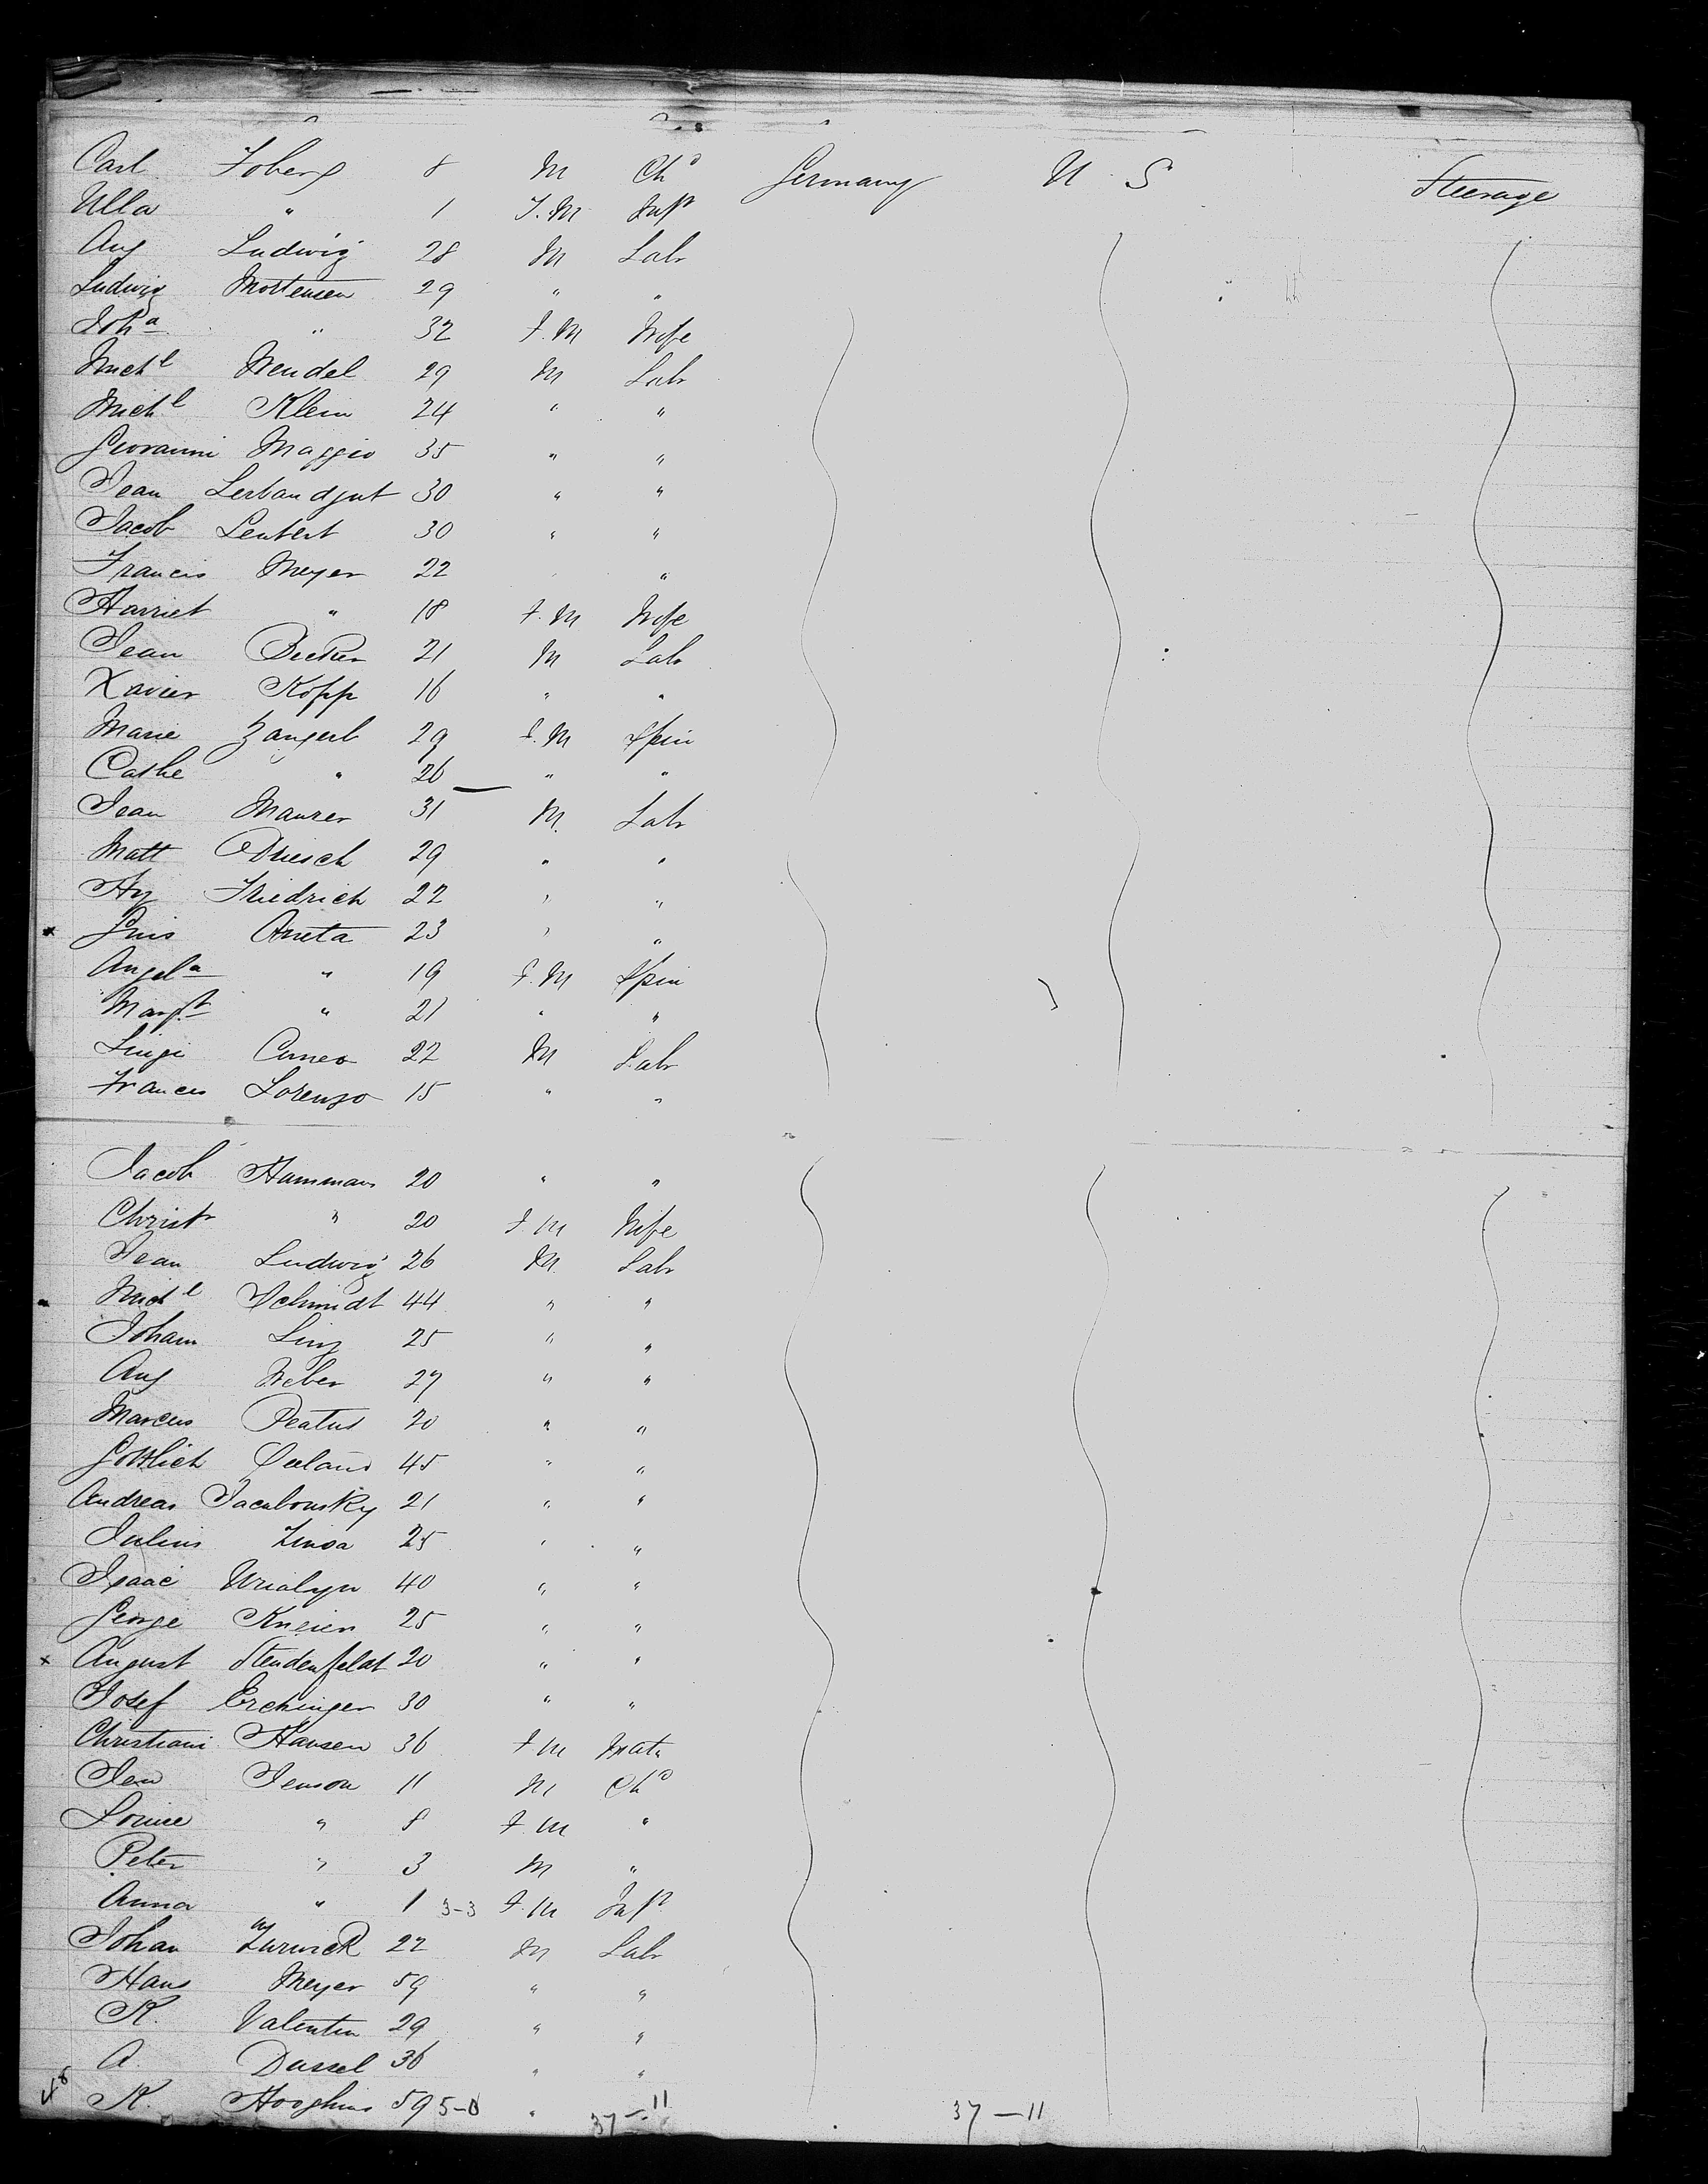 Carl Foberg 8 M Chd Germany U S Steerage
Ulla " 1 F.M Inft
Aug Ludwig 28 M Labr
Ludwig Mortensen 29 " "
Joha " 32 F.M Wife
Michl Wendel 29 M Labr
Michl Klein 24 " "
Giovanni Maggio 35 " "
Jean 30 " "
Jacob Leubert 30 " "
Francis Meyer 22 " "
Harriet " 18 F.M Wife
Jean Becker 21 M Labr
Xavier Kopp 16 " "
Marie Zangerl 29 F.M Spin
Cathe " 26 " "
Jean Maurer 31 M. Labr
Matt Driesch 29 " "
Hy Friedrich 22 " "
Arieta 23 " "
Angela " 19 F.M Spin
Margt " 21 " "
Luigi Cuneo 22 M Labr
Frances Lorenzo 15 " "
Jacob Hammann 20 " "
Christ " 20 F.M Wife
Jean Ludwig 26 M Labr
Michl Schmidt 44 " "
Johann Linz 25 " "
Aug Weber 27 " "
Marcus Peatus 20 " "
Gottlieb 45 " "
Andreas Jacubousky 21 " "
Julius 25 " "
Isaac 40 " "
George Kneier 25 " "
x August Steudenfeldt 20 " "
Josef Erchinger 30 " "
Christiani Hansen 36 F M Matn
Jen Jenson 11 M Chd
Louise " 8 F.M "
Peter " 3 M "
Anna " 1 3-3 F.M Inft
Johan Zurwick 22 M Labr
Hans Meyer 59 " "
K. Valentin 29 " "
A. Dussel 36 " "
48 K. 59 5-0 " 37-11 37-11